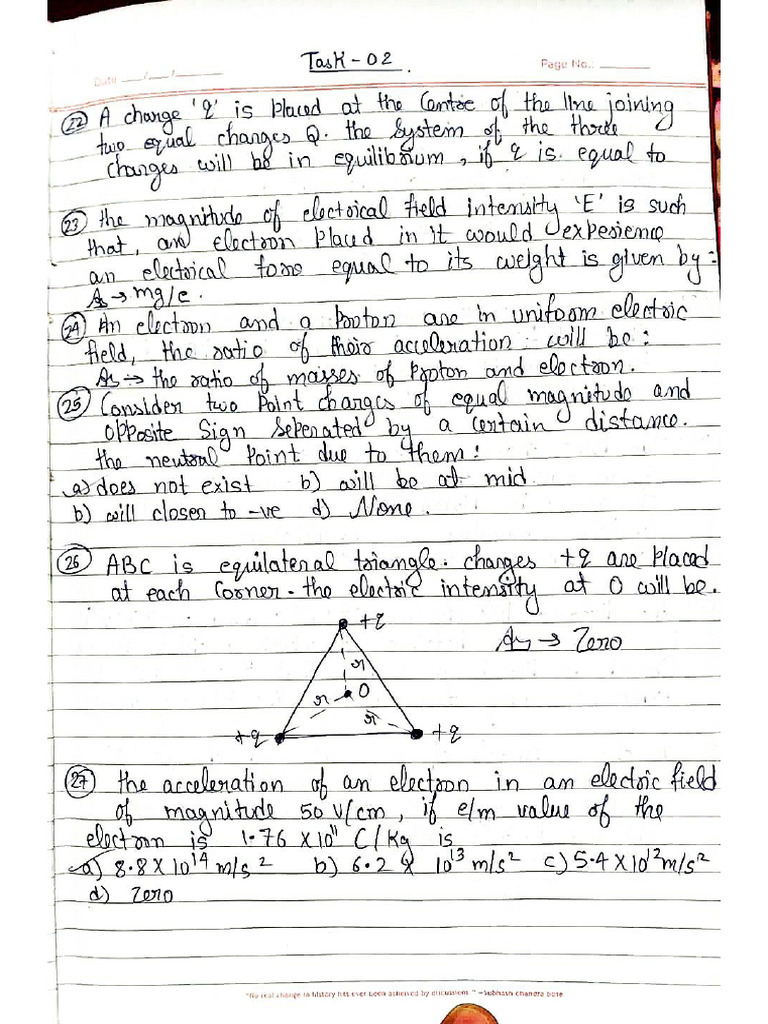 Task-02
Date ___/___/______ Page No.: ______
(22) A charge 'q' is placed at the Centre of the line joining
two equal charges Q. the System of the three
charges will be in equilibrium, if q is equal to
(23) the magnitude of electrical field intensity 'E' is such
that, an electron placed in it would experience
an electrical force equal to its weight is given by:
As → mg/e.
(24) An electron and a proton are in uniform electric
field, the ratio of their acceleration will be:
As → the ratio of masses of proton and electron.
(25) Consider two Point charges of equal magnitude and
opposite Sign Seperated by a certain distance.
the neutral Point due to them:
a) does not exist b) will be at mid
b) will closer to -ve d) None.
(26) ABC is equilateral triangle. charges +q are placed
at each Corner. the electric intensity at O will be.
+q
As → Zero
r
O
r
r
+q +q
(27) the acceleration of an electron in an electric field
of magnitude 50 V/cm, if e/m value of the
electron is 1.76 X 10¹¹ C/Kg is
a) 8.8 X 10¹⁴ m/s² b) 6.2 X 10¹³ m/s² c) 5.4 X 10¹² m/s²
d) Zero
"No real change in history has ever been achieved by discussions." ~Subhash chandra bose